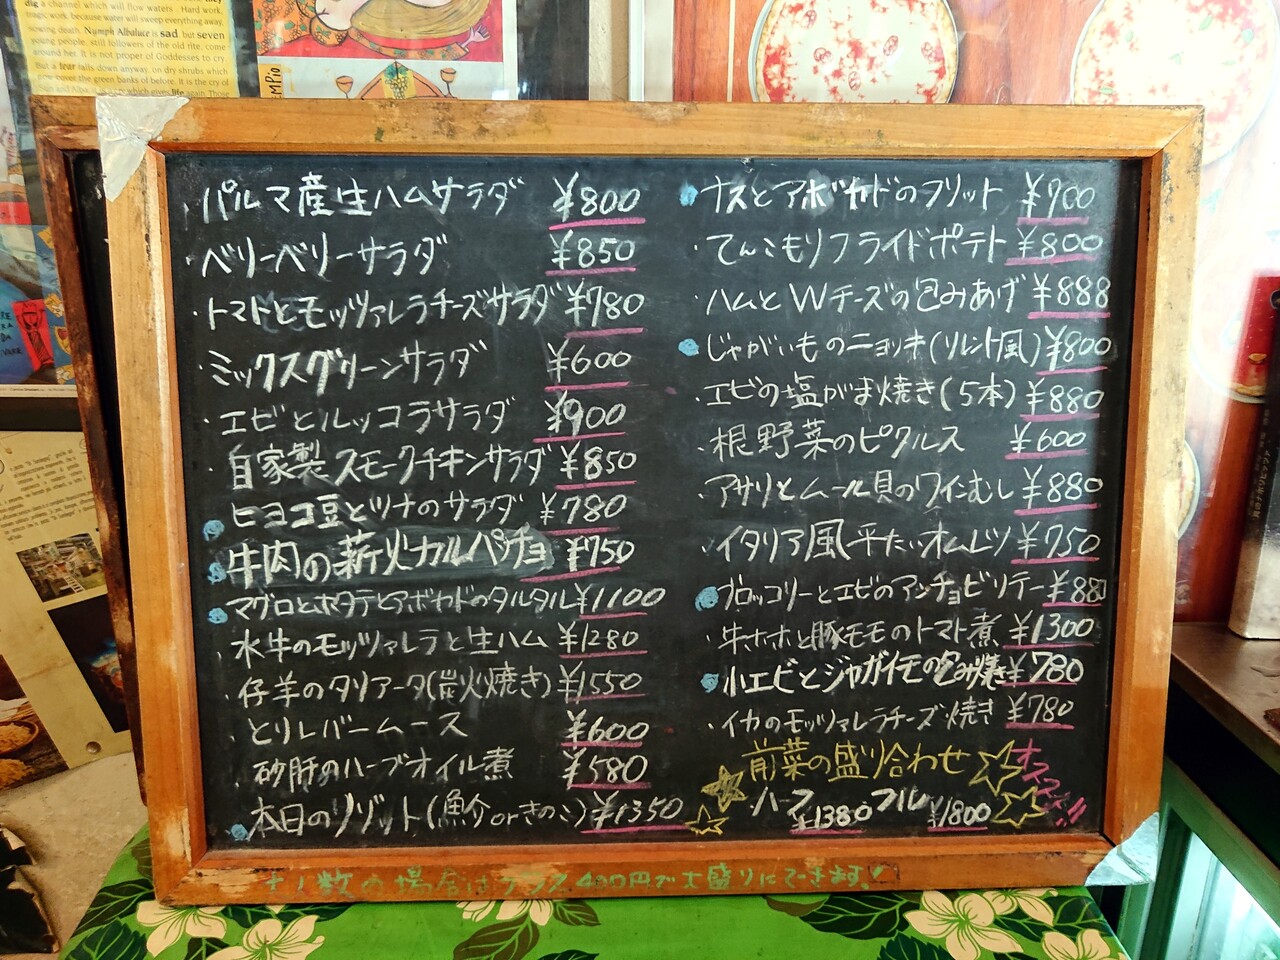 dig a channel which will flow waters. Hard work,
magic work because water will sweep everything away,
nowing death. Nymph Albaluce is sad but seven
young people, still followers of the old rite, come
around her. It is not proper of Goddesses to cry
But a tear falls down anyway, on dry shrubs which
the green banks of before. It is the cry of
life again. Those
・パルマ産生ハムサラダ ¥800
・ベリーベリーサラダ ¥850
・トマトとモッツァレラチーズサラダ ¥780
・ミックスグリーンサラダ ¥600
・エビとルッコラサラダ ¥900
・自家製スモークチキンサラダ ¥850
ヒヨコ豆とツナのサラダ ¥780
牛肉の薪火カルパッチョ ¥750
マグロとホタテとアボカドのタルタル ¥1100
・水牛のモッツァレラと生ハム ¥1280
・仔羊のタリアータ(炭火焼き) ¥1550
・とりレバームース ¥600
・砂肝のハーブオイル煮 ¥580
本日のリゾット(魚介orきのこ) ¥1350
ナスとアボカドのフリット ¥700
・てんこもりフライドポテト ¥800
・ハムとWチーズの包みあげ ¥888
じゃがいものニョッキ(ソレント風) ¥800
・エビの塩がま焼き(5本) ¥880
・根野菜のピクルス ¥600
・アサリとムール貝のワインむし ¥880
・イタリア風(平たいオムレツ ¥750
ブロッコリーとエビのアンチョビソテー ¥880
・牛ホホと豚モモのトマト煮 ¥1300
小エビとジャガイモの包み焼き ¥780
・イカのモッツァレラチーズ焼き ¥780
前菜の盛り合わせ
オススメ!!
ハーフ ¥1380 フル ¥1800
数の場合はプラス400円で大盛りにできます!